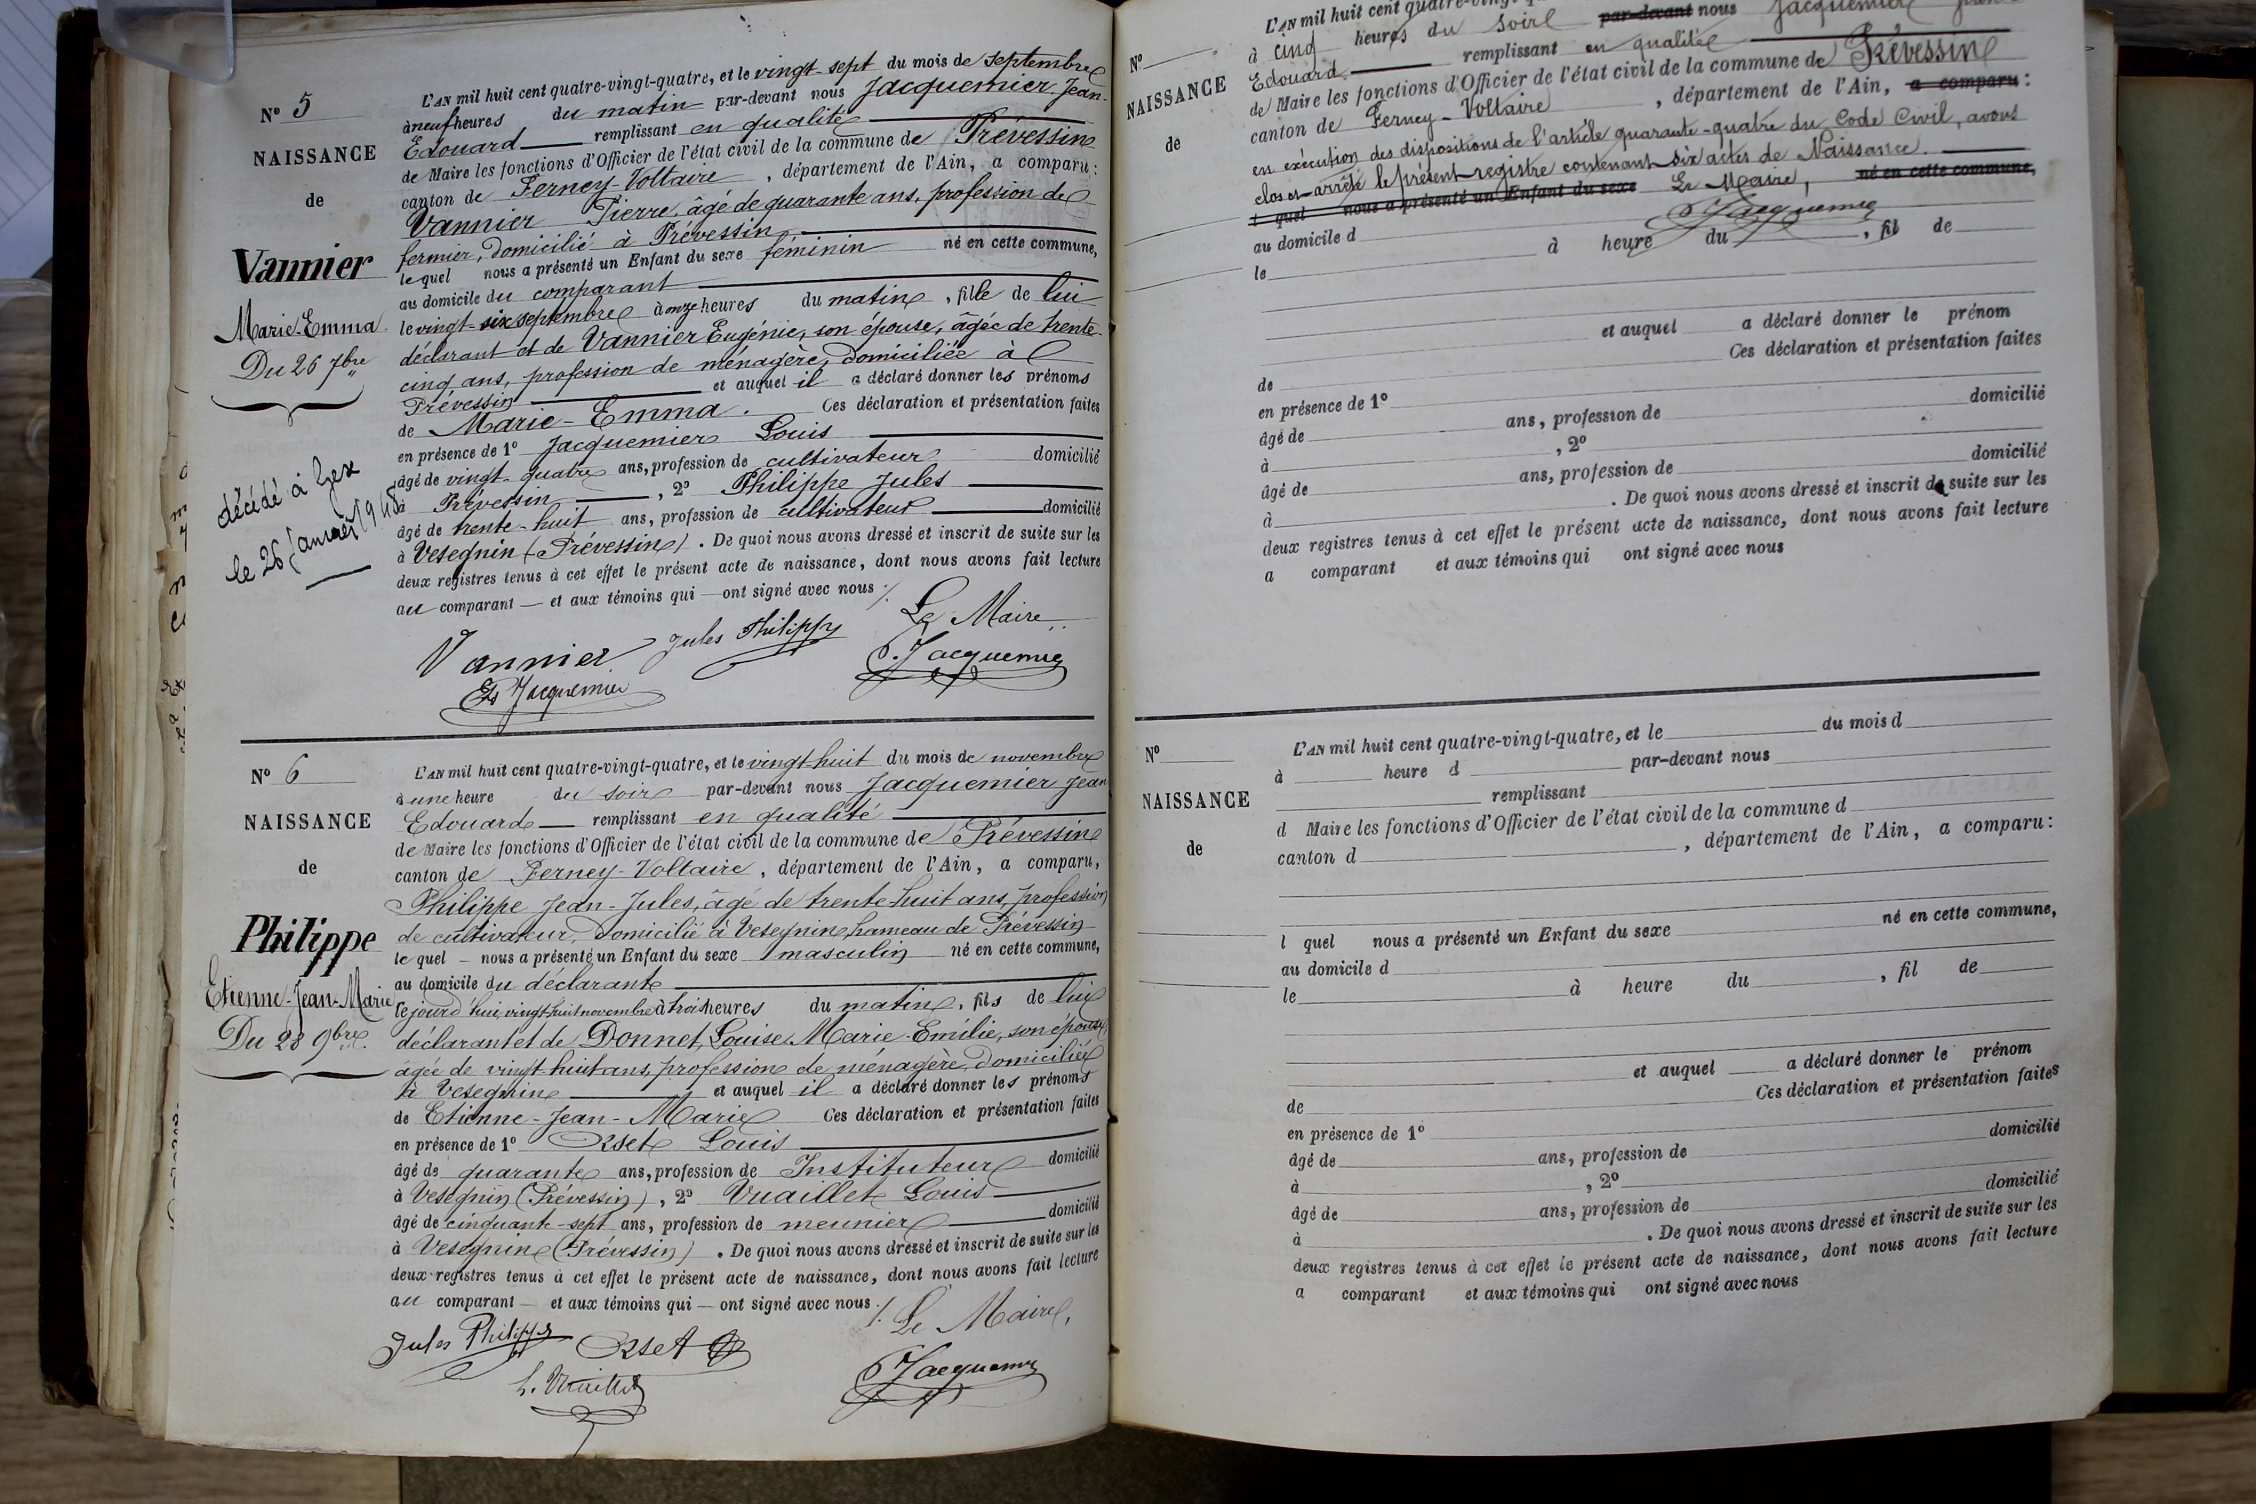 N° 5
NAISSANCE
de
Vannier
Marie-Emma
Du 26 7bre
décédé à Gex
le 26 Janvier 1948
L'AN mil huit cent quatre-vingt-quatre, et le vingt-sept du mois de septembre
à neuf heures du matin par-devant nous Jacquemier Jean-
Edouard remplissant en qualité
de Maire les fonctions d'Officier de l'état civil de la commune de Prévessin
canton de Ferney-Voltaire, département de l'Ain, a comparu:
Vannier Pierre, âgé de quarante ans, profession de
fermier, domicilié à Prévessin
lequel nous a présenté un Enfant du sexe féminin né en cette commune,
au domicile du comparant
le vingt-six septembre à onze heures du matin, fille de lui
déclarant et de Vannier Eugénie, son épouse, âgée de trente-
cinq ans, profession de ménagère, domiciliée à
Prévessin et auquel il a déclaré donner les prénoms
de Marie-Emma. Ces déclaration et présentation faites
en présence de 1° Jacquemier Louis
âgé de vingt-quatre ans, profession de cultivateur domicilié
à Prévessin, 2° Philippe Jules
âgé de trente-huit ans, profession de cultivateur domicilié
à Vesegnin (Prévessin). De quoi nous avons dressé et inscrit de suite sur les
deux registres tenus à cet effet le présent acte de naissance, dont nous avons fait lecture
au comparant et aux témoins qui ont signé avec nous ./.
Le Maire
Vannier Jules Philippe
Jacquemier
Ls Jacquemier
N° 6
NAISSANCE
de
Philippe
Etienne-Jean-Marie
Du 28 9bre
L'AN mil huit cent quatre-vingt-quatre, et le vingt-huit du mois de novembre
à une heure du soir par-devant nous Jacquemier Jean
Edouard remplissant en qualité
de Maire les fonctions d'Officier de l'état civil de la commune de Prévessin
canton de Ferney-Voltaire, département de l'Ain, a comparu,
Philippe Jean-Jules, âgé de trente-huit ans, profession
de cultivateur, domicilié à Vesegnin, hameau de Prévessin
lequel nous a présenté un Enfant du sexe masculin né en cette commune,
au domicile du déclarant
le jourd'hui vingt-huit novembre à trois heures du matin, fils de lui
déclarant et de Donnet, Louise Marie-Emélie, son épouse,
âgée de vingt huit ans, profession de ménagère, domiciliée
à Vesegnin et auquel il a déclaré donner les prénoms
de Etienne-Jean-Marie Ces déclaration et présentation faites
en présence de 1° Rset Louis
âgé de quarante ans, profession de Instituteur domicilié
à Vesegnin (Prévessin), 2° Vuaillet Louis
âgé de cinquante-sept ans, profession de meunier domicilié
à Vesegnin (Prévessin). De quoi nous avons dressé et inscrit de suite sur les
deux registres tenus à cet effet le présent acte de naissance, dont nous avons fait lecture
au comparant et aux témoins qui ont signé avec nous ./.
Le Maire,
Jules Philippe Rset
L. Vuaillet
Jacquemier
N°
NAISSANCE
de
L'AN mil huit cent quatre-vingt
à cinq heures du soir par-devant nous Jacquemier Jean
Edouard remplissant en qualité
de Maire les fonctions d'Officier de l'état civil de la commune de Prévessin
canton de Ferney-Voltaire, département de l'Ain, a comparu:
en exécution des dispositions de l'article quarante-quatre du Code Civil, avons
clos et arrêté le présent registre contenant six actes de Naissance.
l quel nous a présenté un Enfant du sexe Le Maire, né en cette commune,
Jacquemier
au domicile d
le à heure du, fil de
et auquel a déclaré donner le prénom
de Ces déclaration et présentation faites
en présence de 1°
âgé de ans, profession de domicilié
à, 2°
âgé de ans, profession de domicilié
à. De quoi nous avons dressé et inscrit de suite sur les
deux registres tenus à cet effet le présent acte de naissance, dont nous avons fait lecture
a comparant et aux témoins qui ont signé avec nous
N°
NAISSANCE
de
L'AN mil huit cent quatre-vingt-quatre, et le du mois d
à heure d par-devant nous
remplissant
d Maire les fonctions d'Officier de l'état civil de la commune d
canton d, département de l'Ain, a comparu:
l quel nous a présenté un Enfant du sexe né en cette commune,
au domicile d
le à heure du, fil de
et auquel a déclaré donner le prénom
de Ces déclaration et présentation faites
en présence de 1°
âgé de ans, profession de domicilié
à, 2°
âgé de ans, profession de domicilié
à. De quoi nous avons dressé et inscrit de suite sur les
deux registres tenus à cet effet le présent acte de naissance, dont nous avons fait lecture
a comparant et aux témoins qui ont signé avec nous